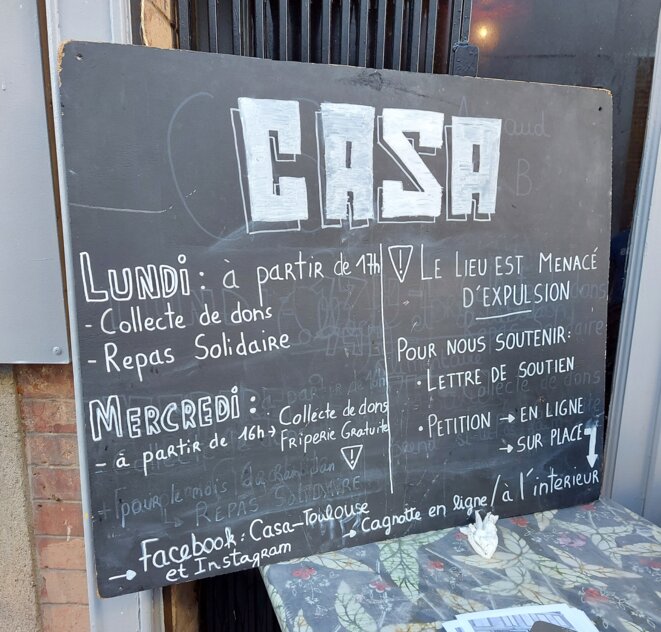 CASA
LUNDI : à partir de 17h
- Collecte de dons
- Repas Solidaire
MERCREDI :
- à partir de 16h → Collecte de dons
Friperie Gratuite
+ pour le mois du Ramadan
↳ REPAS SOLIDAIRE
! LE LIEU EST MENACÉ
D'EXPULSION
POUR NOUS SOUTENIR :
• LETTRE DE SOUTIEN
• PETITION → EN LIGNE
→ SUR PLACE
→ Cagnotte en ligne / à l'intérieur
→ Facebook : Casa-Toulouse
et Instagram